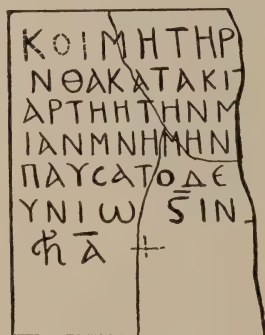 ΚΟΙΜΗΤΗΡ
ΝΘΑΚΑΤΑΚΙΤ
ΑΡΤΗΗΤΗΝΜ
ΙΑΝΜΝΗΜΗΝ
ΠΑΥCΑΤΟΔΕ
ΥΝΙω Ϛ̅ΙΝ
Α̅